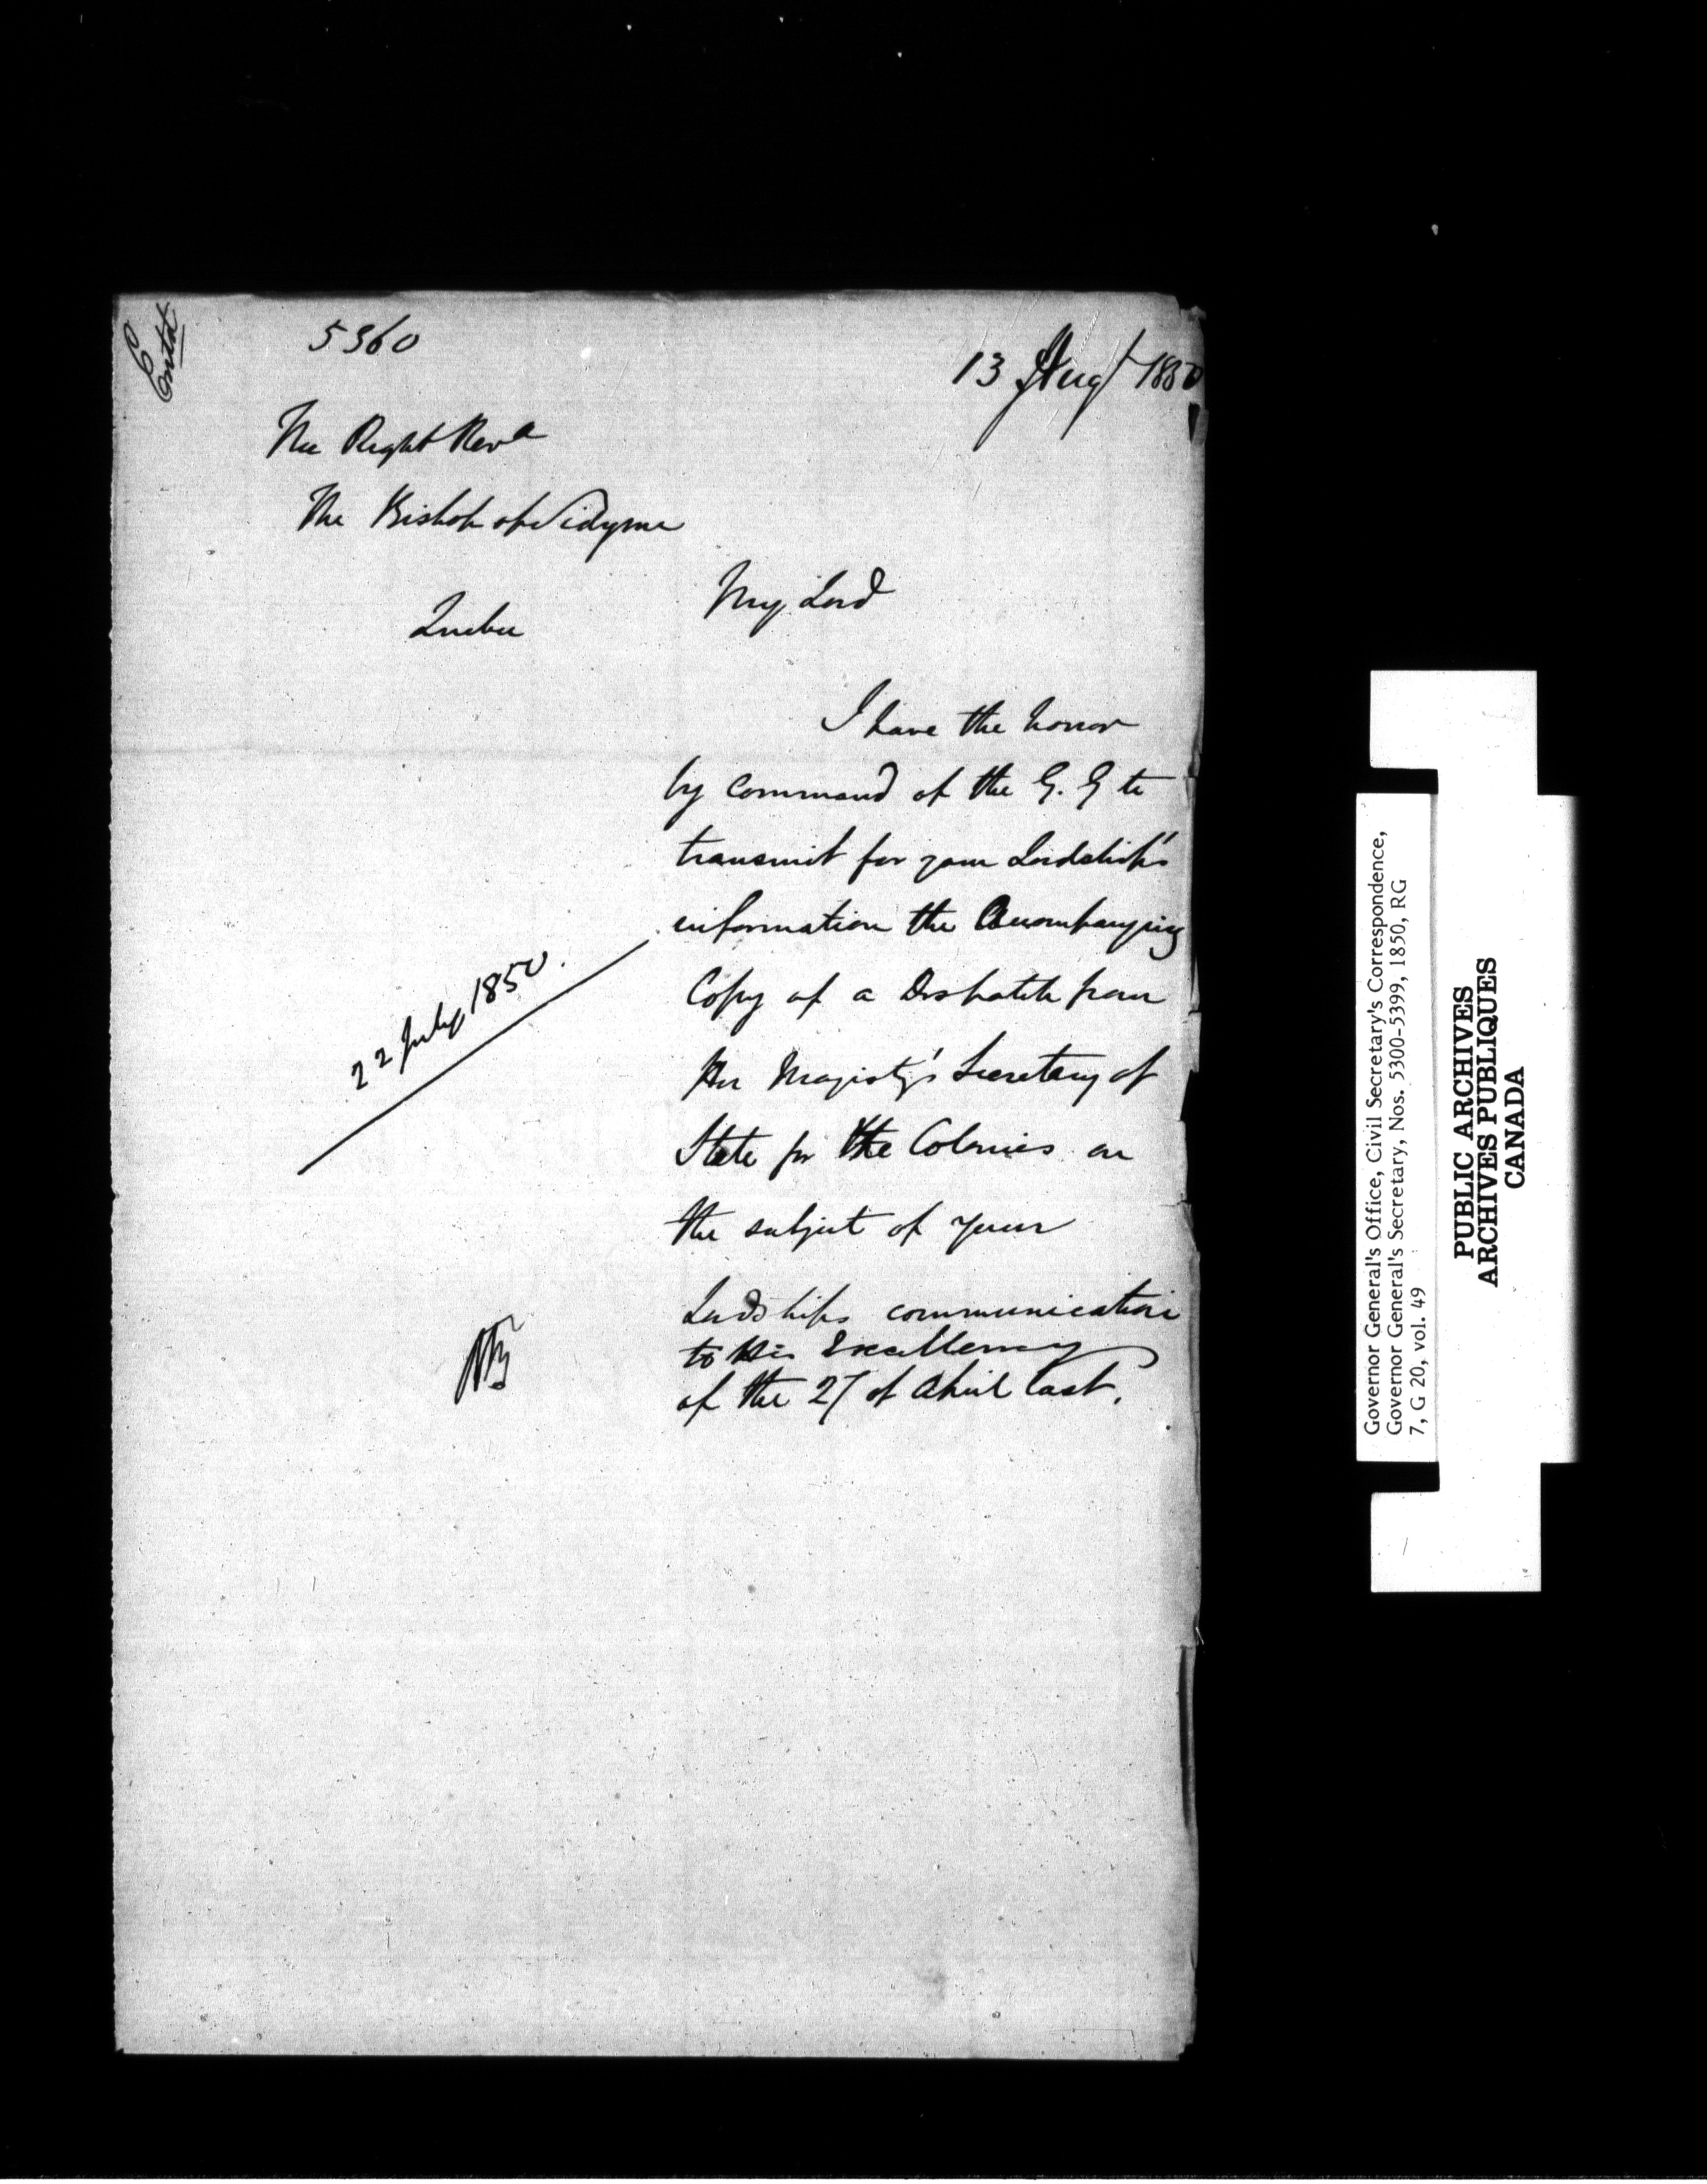 Entd
5360
13 Augt 1850
The Right Revd
The Bishop of Sidyme
Quebec
My Lord
I have the honor
by Command of the G. G to
transmit for your Lordship's
information the Accompanying
Copy of a Despatch from
Her Majesty's Secretary of
State for the Colonies on
the subject of your
Lordships communication
to His Excellency
of the 27 of April last.
22 July 1850.
Governor General's Office, Civil Secretary's Correspondence,
Governor General's Secretary, Nos. 5300-5399, 1850, RG
7, G 20, vol. 49
PUBLIC ARCHIVES
ARCHIVES PUBLIQUES
CANADA